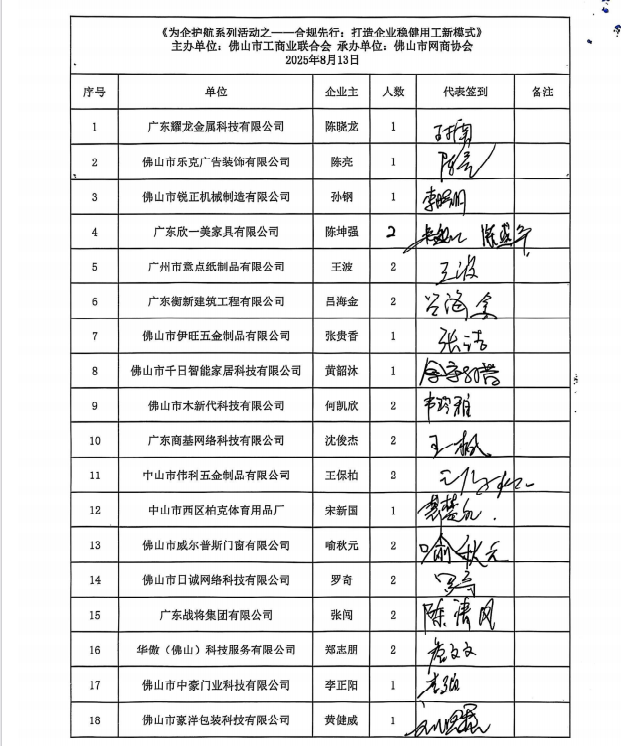 《为企护航系列活动之一——合规先行：打造企业稳健用工新模式》
主办单位：佛山市工商业联合会 承办单位：佛山市网商协会
2025年8月13日
序号 单位 企业主 人数 代表签到 备注
1 广东耀龙金属科技有限公司 陈晓龙 1
2 佛山市乐克广告装饰有限公司 陈亮 1 陈亮
3 佛山市锐正机械制造有限公司 孙钢 1
4 广东欣一美家具有限公司 陈坤强 2
5 广州市意点纸制品有限公司 王波 2 王波
6 广东衡新建筑工程有限公司 吕海金 2 吕海金
7 佛山市伊旺五金制品有限公司 张贵香 1 张洁
8 佛山市千日智能家居科技有限公司 黄韶沐 1
9 佛山市木新代科技有限公司 何凯欣 2
10 广东商基网络科技有限公司 沈俊杰 2
11 中山市伟利五金制品有限公司 王保柏 2
12 中山市西区柏克体育用品厂 宋新国 1
13 佛山市威尔普斯门窗有限公司 喻秋元 2 喻秋元
14 佛山市日诚网络科技有限公司 罗奇 2 罗奇
15 广东战将集团有限公司 张闯 2 陈清风
16 华傲（佛山）科技服务有限公司 郑志朋 2
17 佛山市中豪门业科技有限公司 李正阳 1
18 佛山市豪洋包装科技有限公司 黄健威 1